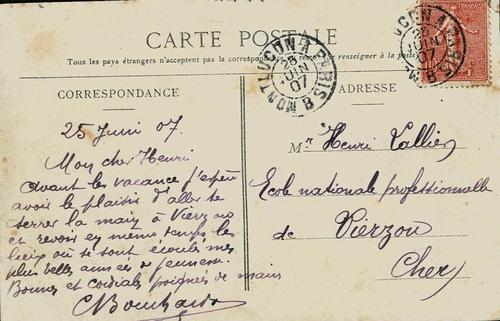 CARTE POSTALE
Tous les pays étrangers n'acceptent pas la correspondance se renseigner à la poste
CORRESPONDANCE
25 Juin 07.
Mon cher Henri
avant les vacance j'espère
avoir le plaisir d'aller te
serrer la main à Vierzon
et revoir en même temps les
lieux où se sont écoulés mes
plus belles années de jeunesse.
Bonnes et cordiales poignées de mains
ADRESSE
Mr Henri Vallier
Ecole nationale professionnelle
de Vierzon
Cher
MONTLUCON A PARIS B
25
JUIN
07